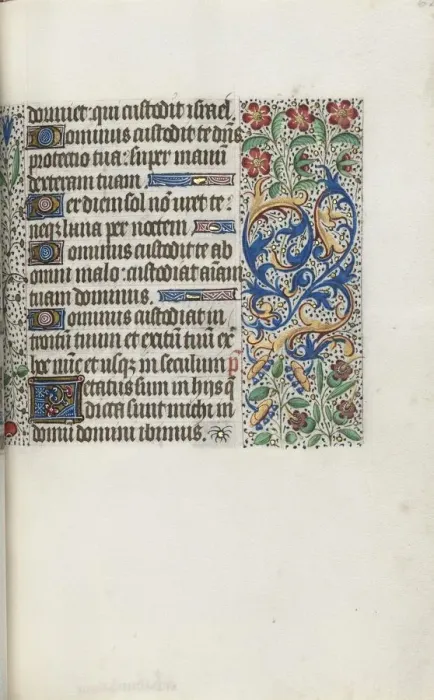 dormiet: qui custodit israel.
Dominus custodit te dn̄s
protectio tua: super manū
dexteram tuam.
Per diem sol nō uret te:
neqz luna per noctem.
Dominus custodit te ab
omni malo: custodiat aīam
tuam dominus.
Dominus custodiat in
troitū tuum et exitū tuū ex
hoc nūc et usqz in seculum p
Letatus sum in hijs q̄
dicta sunt michi in
domū domini ibimus.